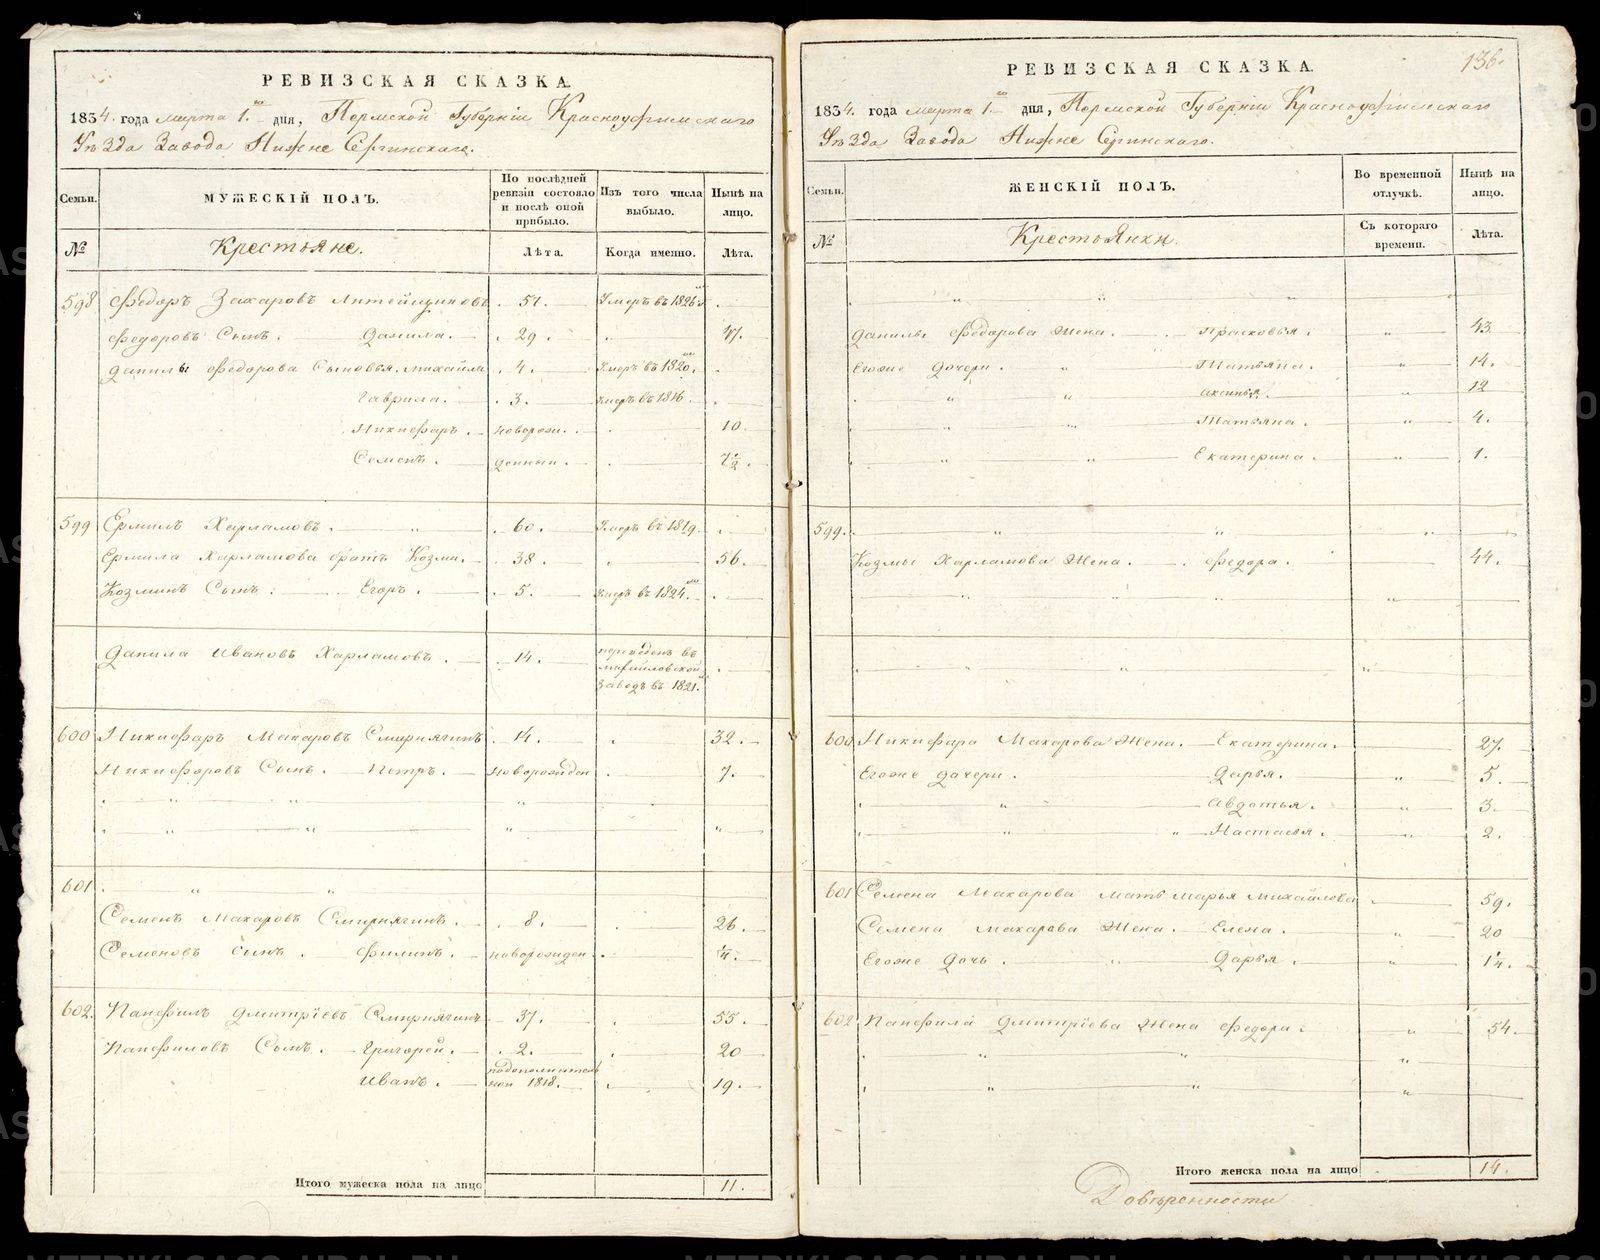 РЕВИЗСКАЯ СКАЗКА.
1834. года марта 1.го дня, Пермской Губерніи Красноуфимскаго
Уѣзда Завода Нижне Сергинскаго.
Семьи. МУЖЕСКІЙ ПОЛЪ. По послѣдней ревизіи состояло и послѣ оной прибыло. Изъ того числа выбыло. Нынѣ на лицо.
№ Крестьяне. Лѣта. Когда именно. Лѣта.
598 Федоръ Захаровъ Литейщиковъ 51. Умеръ въ 1826
Федоровъ Сынъ. Данила. 29. 47.
Данилы Федорова Сыновья. Михайла 4. Умеръ въ 1820.
Гаврила. 3. Умеръ въ 1816.
Никифаръ. новорож. 10.
Семенъ. денныи. 7 1/2.
599 Ермилъ Харламовъ. 60. Умеръ въ 1819.
Ермила Харламова братъ Козма. 38. 56.
Козминъ Сынъ. Егоръ. 5. Умеръ въ 1824.
Данила Ивановъ Харламовъ. 14. переведенъ въ Михайловской Заводъ въ 1821.
600 Никифаръ Макаровъ Смирнягинъ 14. 32.
Никифоровъ Сынъ. Петръ. новорожден 7.
601
Семенъ Макаровъ Смирнягинъ. 8. 26.
Семеновъ Сынъ. Филипъ. новорожден. 1/4.
602. Панфилъ Дмитріевъ Смирнягинъ 37. 55.
Панфиловъ Сынъ. Григорей. 2. 20
Иванъ. подополнительной 1818. 19.
Итого мужеска пола на лицо 11.
136.
РЕВИЗСКАЯ СКАЗКА.
1834. года марта 1.го дня, Пермской Губерніи Красноуфимскаго
Уѣзда Завода Нижне Сергинскаго.
Семьи. ЖЕНСКІЙ ПОЛЪ. Во временной отлучкѣ. Нынѣ на лицо.
№ Крестьянки. Съ котораго времени. Лѣта.
Данилы Федорова Жена. Прасковья. 43.
Егоже дочери. Татьяна. 14.
Аксинья. 12
Татьяна. 4.
Екатерина. 1.
599.
Козмы Харламова Жена. Федора. 44.
600 Никифара Макарова Жена. Екатерина. 27.
Егоже дочери. Дарья. 5.
Авдотья. 3.
Настасья. 2.
601 Семена Макарова мать Марья Михайлова 59.
Семена Макарова Жена. Елена. 20
Егоже Дочь. Дарья. 1/4.
602 Панфила Дмитріева Жена Федора. 54.
Итого женска пола на лицо 14.
Довѣренности